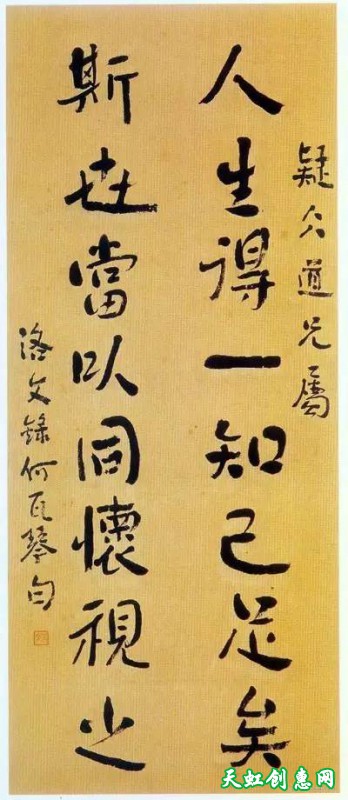 疑仌道兄屬
人生得一知己足矣
斯世當以同懷視之
洛文錄何瓦琴句
天虹创惠网